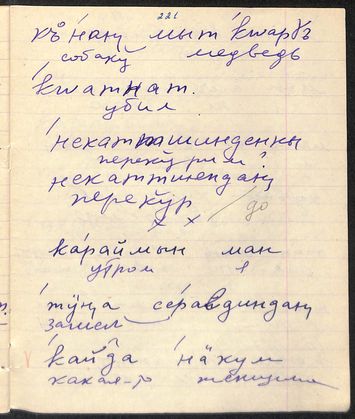 221
къ́наӊ мыт кwарɣъ
собаку медведь
кwатнат.
убил
некатпашинденкы
перекурим?
некаттшендаӊ
перекур
х х / до
караймын ман
утром я
тӱӊа серавдиндаӊ
зашел
кайда нäкум
какая-то женщина